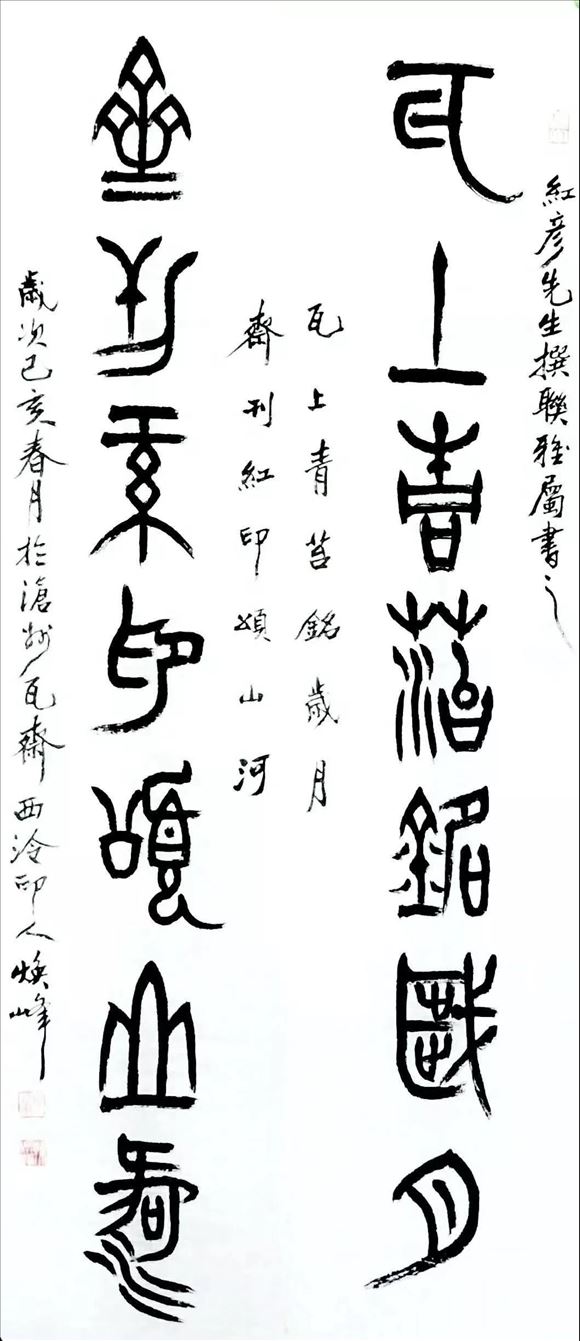 紅彦先生撰聯雅屬書之
瓦上青苔銘歲月
瓦上青苔銘歲月
齋刊紅印頌山河
齋刊紅印頌山河
歲次己亥春月於滄州瓦齋西泠印人煥峰